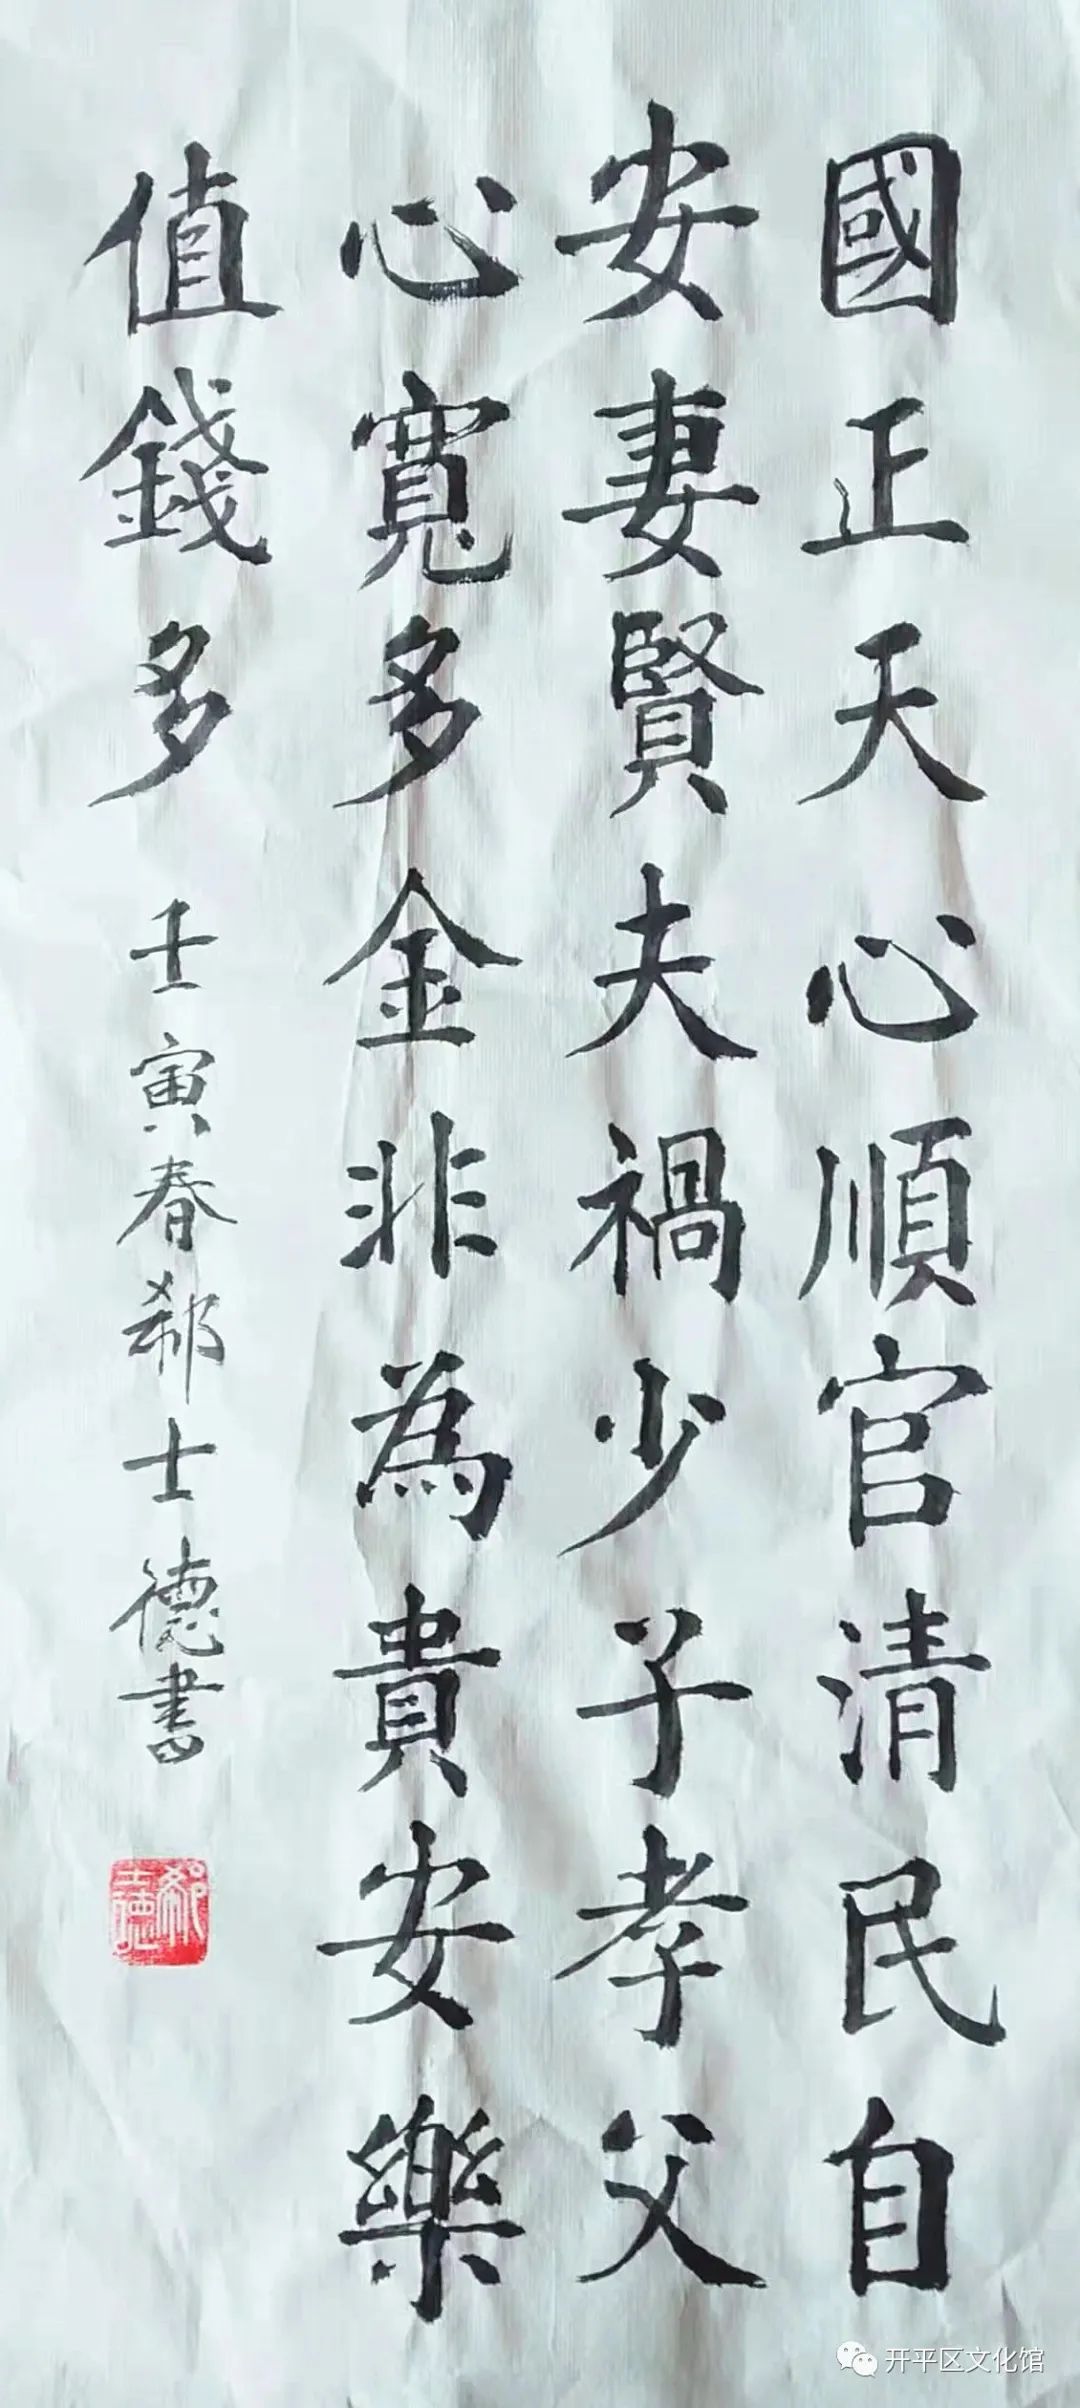 國正天心順官清民自
安妻賢夫禍少子孝父
心寬多金非為貴安樂
值錢多
壬寅春郗士德書
郗士德
开平区文化馆